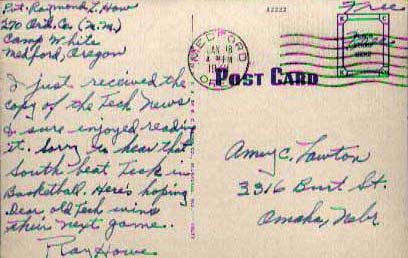 Pvt. Raymond L. Howe
270 Ord. Co. (M.M.)
Camp White
Medford, Oregon
I just received the
copy of the Tech News
I sure enjoyed reading
it. Sorry to hear that
South beat Tech in
Basketball. Here's hoping
Dear old Tech wins
their next game.
Ray Howe
Free
MEDFORD
JAN 18
4 PM
OREG.
POST CARD
Amey C. Lawton
3316 Burt. St.
Omaha, Nebr